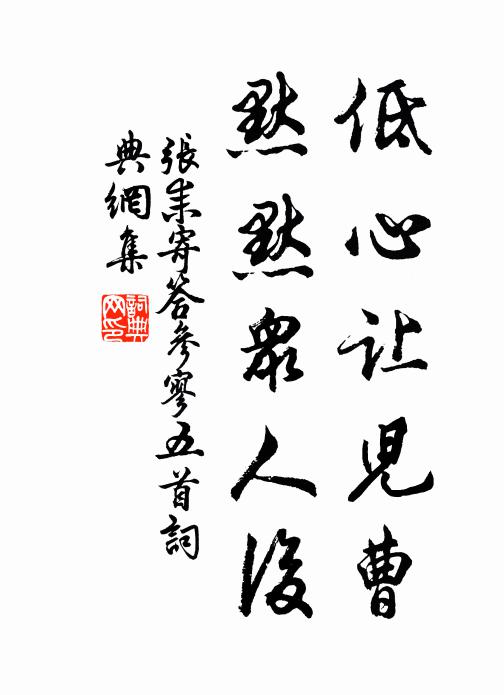 低心让兒曹
默默衆人後
張耒寄答參寥五首詞
典網集
詞典
网印